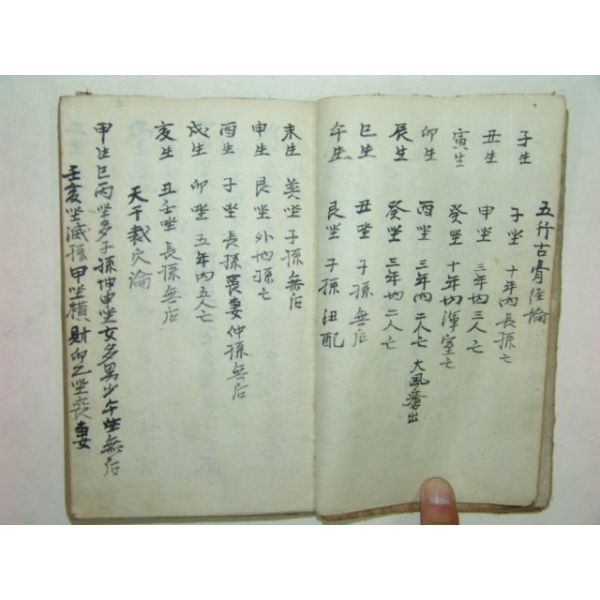 五行古骨經論
子生 子坐 十年內長孫亡
丑生 申坐 三年內三人亡
寅生 癸坐 十年內渾室亡
卯生 酉坐 三年內二人亡 大風瘡出
辰生 癸坐 三年內二人亡
巳生 丑坐 子孫無后
午生 艮坐 子孫 配
未生 癸坐 子孫無后
申生 艮坐 外地孫亡
酉生 子坐 長孫喪妻仲孫無后
戌生 卯坐 五年內五人亡
亥生 丑壬坐 長孫無后
天干裁穴論
甲生巳丙坐多子孫坤申坐女多男少午坐無后
壬亥坐滅孫甲坐橫財卯乙坐喪妻